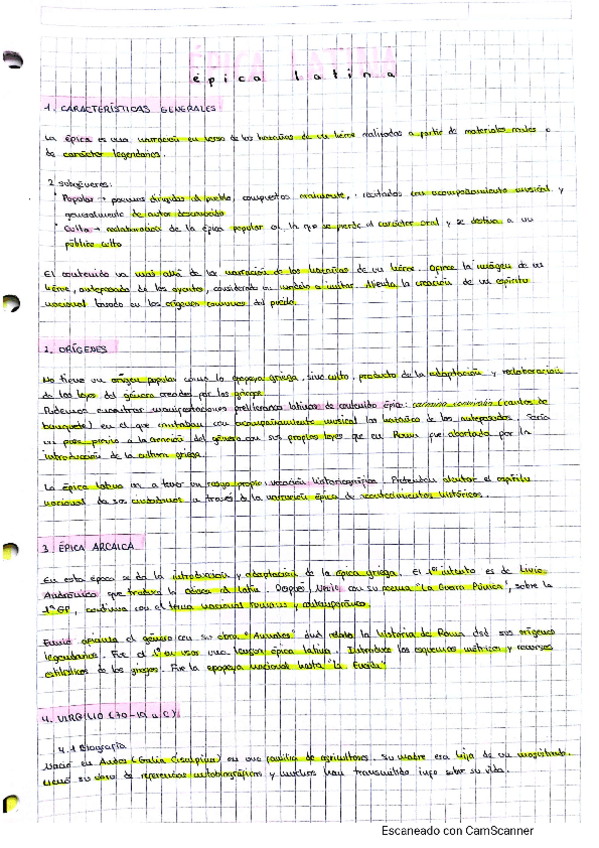 épica latina
1. CARACTERÍSTICAS GENERALES
La épica es una narración en verso de las hazañas de un héroe realizadas a partir de materiales reales o
de carácter legendarios.
2 subgéneros:
Popular → poemas dirigidos al pueblo, compuestos oralmente, recitados con acompañamiento musical y
generalmente de autor desconocido
Culta → reelaboración de la épica popular en la que se pierde el carácter oral y se destina a un
público culto
El contenido va más allá de la narración de las hazañas de un héroe. Ofrece la imagen de un
héroe, antepasado de los oyentes, considerado un modelo a imitar. Alienta la creación de un espíritu
nacional basado en los orígenes comunes del pueblo.
2. ORÍGENES
No tiene un origen popular como la epopeya griega, sino culto, producto de la adaptación y reelaboración
de las leyes del género creadas por los griegos.
Podemos encontrar manifestaciones preliterarias latinas de contenido épico: carmina convivalia (cantos de
banquete) en el que cantaban con acompañamiento musical las hazañas de los antepasados. Sería
un paso previo a la creación del género con sus propias leyes que en Roma fue abortada por la
introducción de la cultura griega.
La épica latina va a tener un rasgo propio, vocación historiográfica. Pretendían alentar el espíritu
nacional de sus ciudadanos a través de la narración épica de acontecimientos históricos.
3. ÉPICA ARCAICA
En esta época se da la introducción y adaptación de la épica griega. El 1º intento es de Livio
Andrónico que traduce la odisea al latín. Después, Nevio con su poema "La Guerra Púnica", sobre la
1ª GP, continua con el tema nacional romano y contemporáneo.
Ennio afianza el género con su obra "Annales" dnd relata la historia de Roma dsd sus orígenes
legendarios. Fue el 1º en usar una lengua épica latina. Introduce los esquemas métricos y recursos
estilísticos de los griegos. Fue la epopeya nacional hasta "La Eneida"
4. VIRGILIO (70-19 a.C)
4.1 Biografía
Nació en Andes (Galia Cisalpina) en una familia de agricultores. Su madre era hija de un magistrado.
Llenó su obra de referencias autobiográficas y muchos han transmitido info sobre su vida.
Escaneado con CamScanner